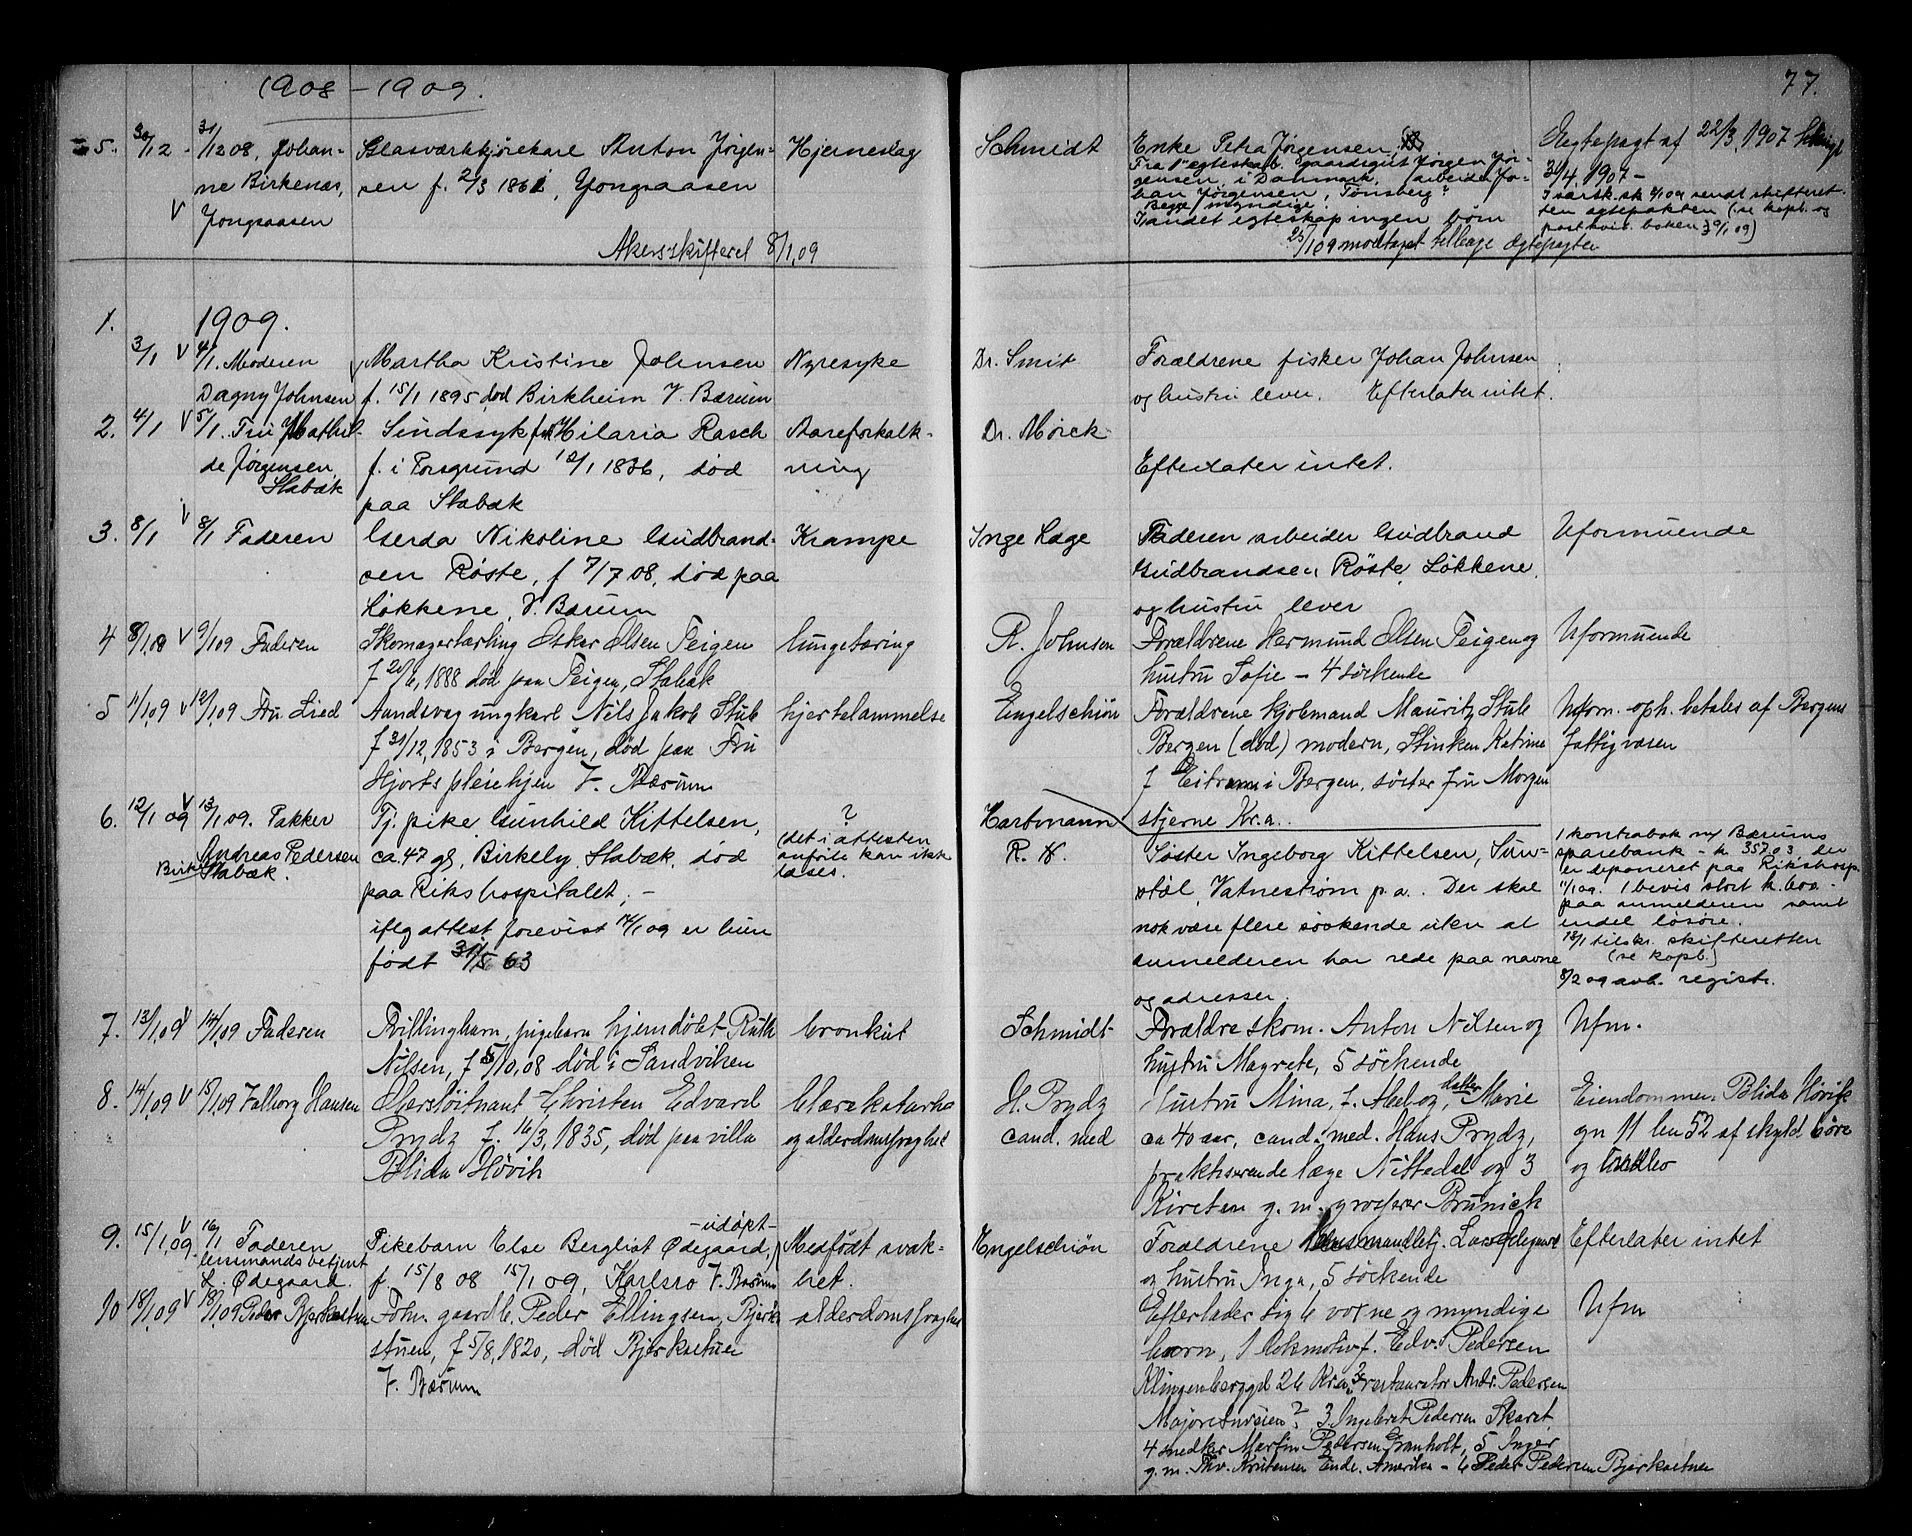 1908 - 1909.
77.
5. 30/12 - 31/12 08, Johan- Glasværkskjørekarl Anton Jørgen- Hjerneslag Schmidt Enke Petra Jørgensen, Ægtepagt af 22/3 1907
ne Birkenæs, sen f. 2/3 1861, Jongsaasen Fra 1ste egteskab gaardeigut Jørgen Jør- 30/4 1907 -
V Jongsaasen gensen i Danmark, arbeider Jo-
han Jørgensen, Tønsberg?
Begge myndige.
I andet egteskap ingen børn
ten egtepakten (se kopb. og
post kvit. boken 30/1 09)
Akersskifteret 8/1,09 25/1 09 modtaget tilbage Ægtepagten
1. 1909.
3/1 V 4/1. Moderen Martha Kristine Johnsen Nyresyke Dr. Smit Forældrene fisker Johan Johnsen
Dagny Johnsen f. 15/1 1895 død Birkheim V. Bærum og hustru lever. Efterlater intet.
2. 4/1 V 5/1. Fru Mathil- Sindssyk frk Hilaria Rasch Aareforkalk- Dr. Mørck
de Jørgensen f. i Porsgrund 12/1 1836, død ning Efterlater intet.
Stabæk paa Stabæk
3. 8/1 V 8/1 Faderen Gerda Nikoline Gudbrand- Krampe Inge Lage Faderen arbeider Gudbrand Uformuende
sen Røste, f 7/7 08, død paa Gudbrandsen Røste, Løkkene,
Løkkene, V. Bærum og hustru lever
4 8/1,09 V 9/1 09 Faderen Skomagerlærling Oskar Olsen Teigen lungetæring R. Johnsen Forældrene Hermund Olsen Teigen og Uformuende
f 20/6, 1888 død paa Teigen, Stabæk hustru Sofie - 4 søskende
5 11/1,09 V 12/1 09 Fru Lied Aandsvag ungkarl Nils Jakob Stub hjertelammelse Engelschiøn Forældrene kjøbmand Mauritz Stub Uform. oph. betales af Bergens
f 31/12, 1853 i Bergen, død paa Fru Bergen (død) modern, Stinken Katrine fattigvæsen
Hjorts pleiehjen V. Bærum f Eitrem i Bergen, søster fru Morgen
6. 12/1 09 V 13/1 09. Pakker Tj. pike Gunhild Kittelsen, ? Hartmann stjerne Kr.a.
Andreas Pedersen ca. 47 gl, Birkely Stabæk, død (det i attesten R. H. Søster Ingeborg Kittelsen, Sun- 1 kontrabok m/ Bærums
Stabæk. paa Rikshospitalet; - anførte kan ikke støl, Vatnestrøm p.a. Der skal sparebank - kr. 357.03, der
iflg attest forevist 14/1 09 er hun læses. nok være flere søskende uten at er deponeret paa Rikshosp.
født 31/5 63 anmelderen har rede paa navne 11/1 09. 1 bevis stort kr. 600 -
og adresser. paa anmelderen samt
endel løsøre.
13/1 tilskr. skifteretten
(se kopb.)
8/2 09 avh. registr.
7. 13/1,09 V 14/1,09 Faderen Trillingbarn, pigebarn hjemdøbt Ruth bronkit Schmidt Forældre skom. Anton Nilsen og Ufm.
Nilsen, f 5/10,08 død i Sandviken hustru Magrete, 5 søskende
8. 14/1,09 V 15/1 09 Valborg Hansen Oberstløitnant Christen Edvard blærekatarhe H. Prydz Hustru Mina, f. Abel og, datter Marie Eiendommen Blida Høvik
Prydz f. 16/3, 1835, død paa villa og alderdomssvaghet cand. med ca 40 aar, cand. med. Hans Prydz, gn 11 bn 52 af skyld 60re
Blida Høvik praktiserende læge Nittedal og 3 og indbo
Kirsten g. m. grosserer Brunick
9. 15/1,09. V 16/1 Faderen Pikebarn Else Bergliot Ødegaard, - udøpt - Medfødt svak- Engelschiøn Forældrene Lars Ødegaard Efterlater intet
lensmandsbetjent f. 15/8 08 15/1 09, Karlsro V. Bærum het. og hustru Inga, 5 søskende
L. Ødegaard.
10 18/1,09 V 18/1,09 Peder Bjerkestuen Fohn. gaardb. Peder Ellingsen, Bjerke alderdomssvaghet Efterlader sig 6 voxne og myndige Ufm
stuen, f 5/8, 1820, død Bjerkestuen børn, 1 lokomotivf. Edv. Pedersen
V. Bærum Klingenberggd 26 Kr.a, 2 restauratør Andr. Pedersen
Majorstuveien? 3 Ingeborg Pedersen Skaret
4 snedker Martin Pedersen Granholt, 5 Inger
g. m. Thv. Kristensen Amerika - 6 Peder Pedersen Bjerkestuen